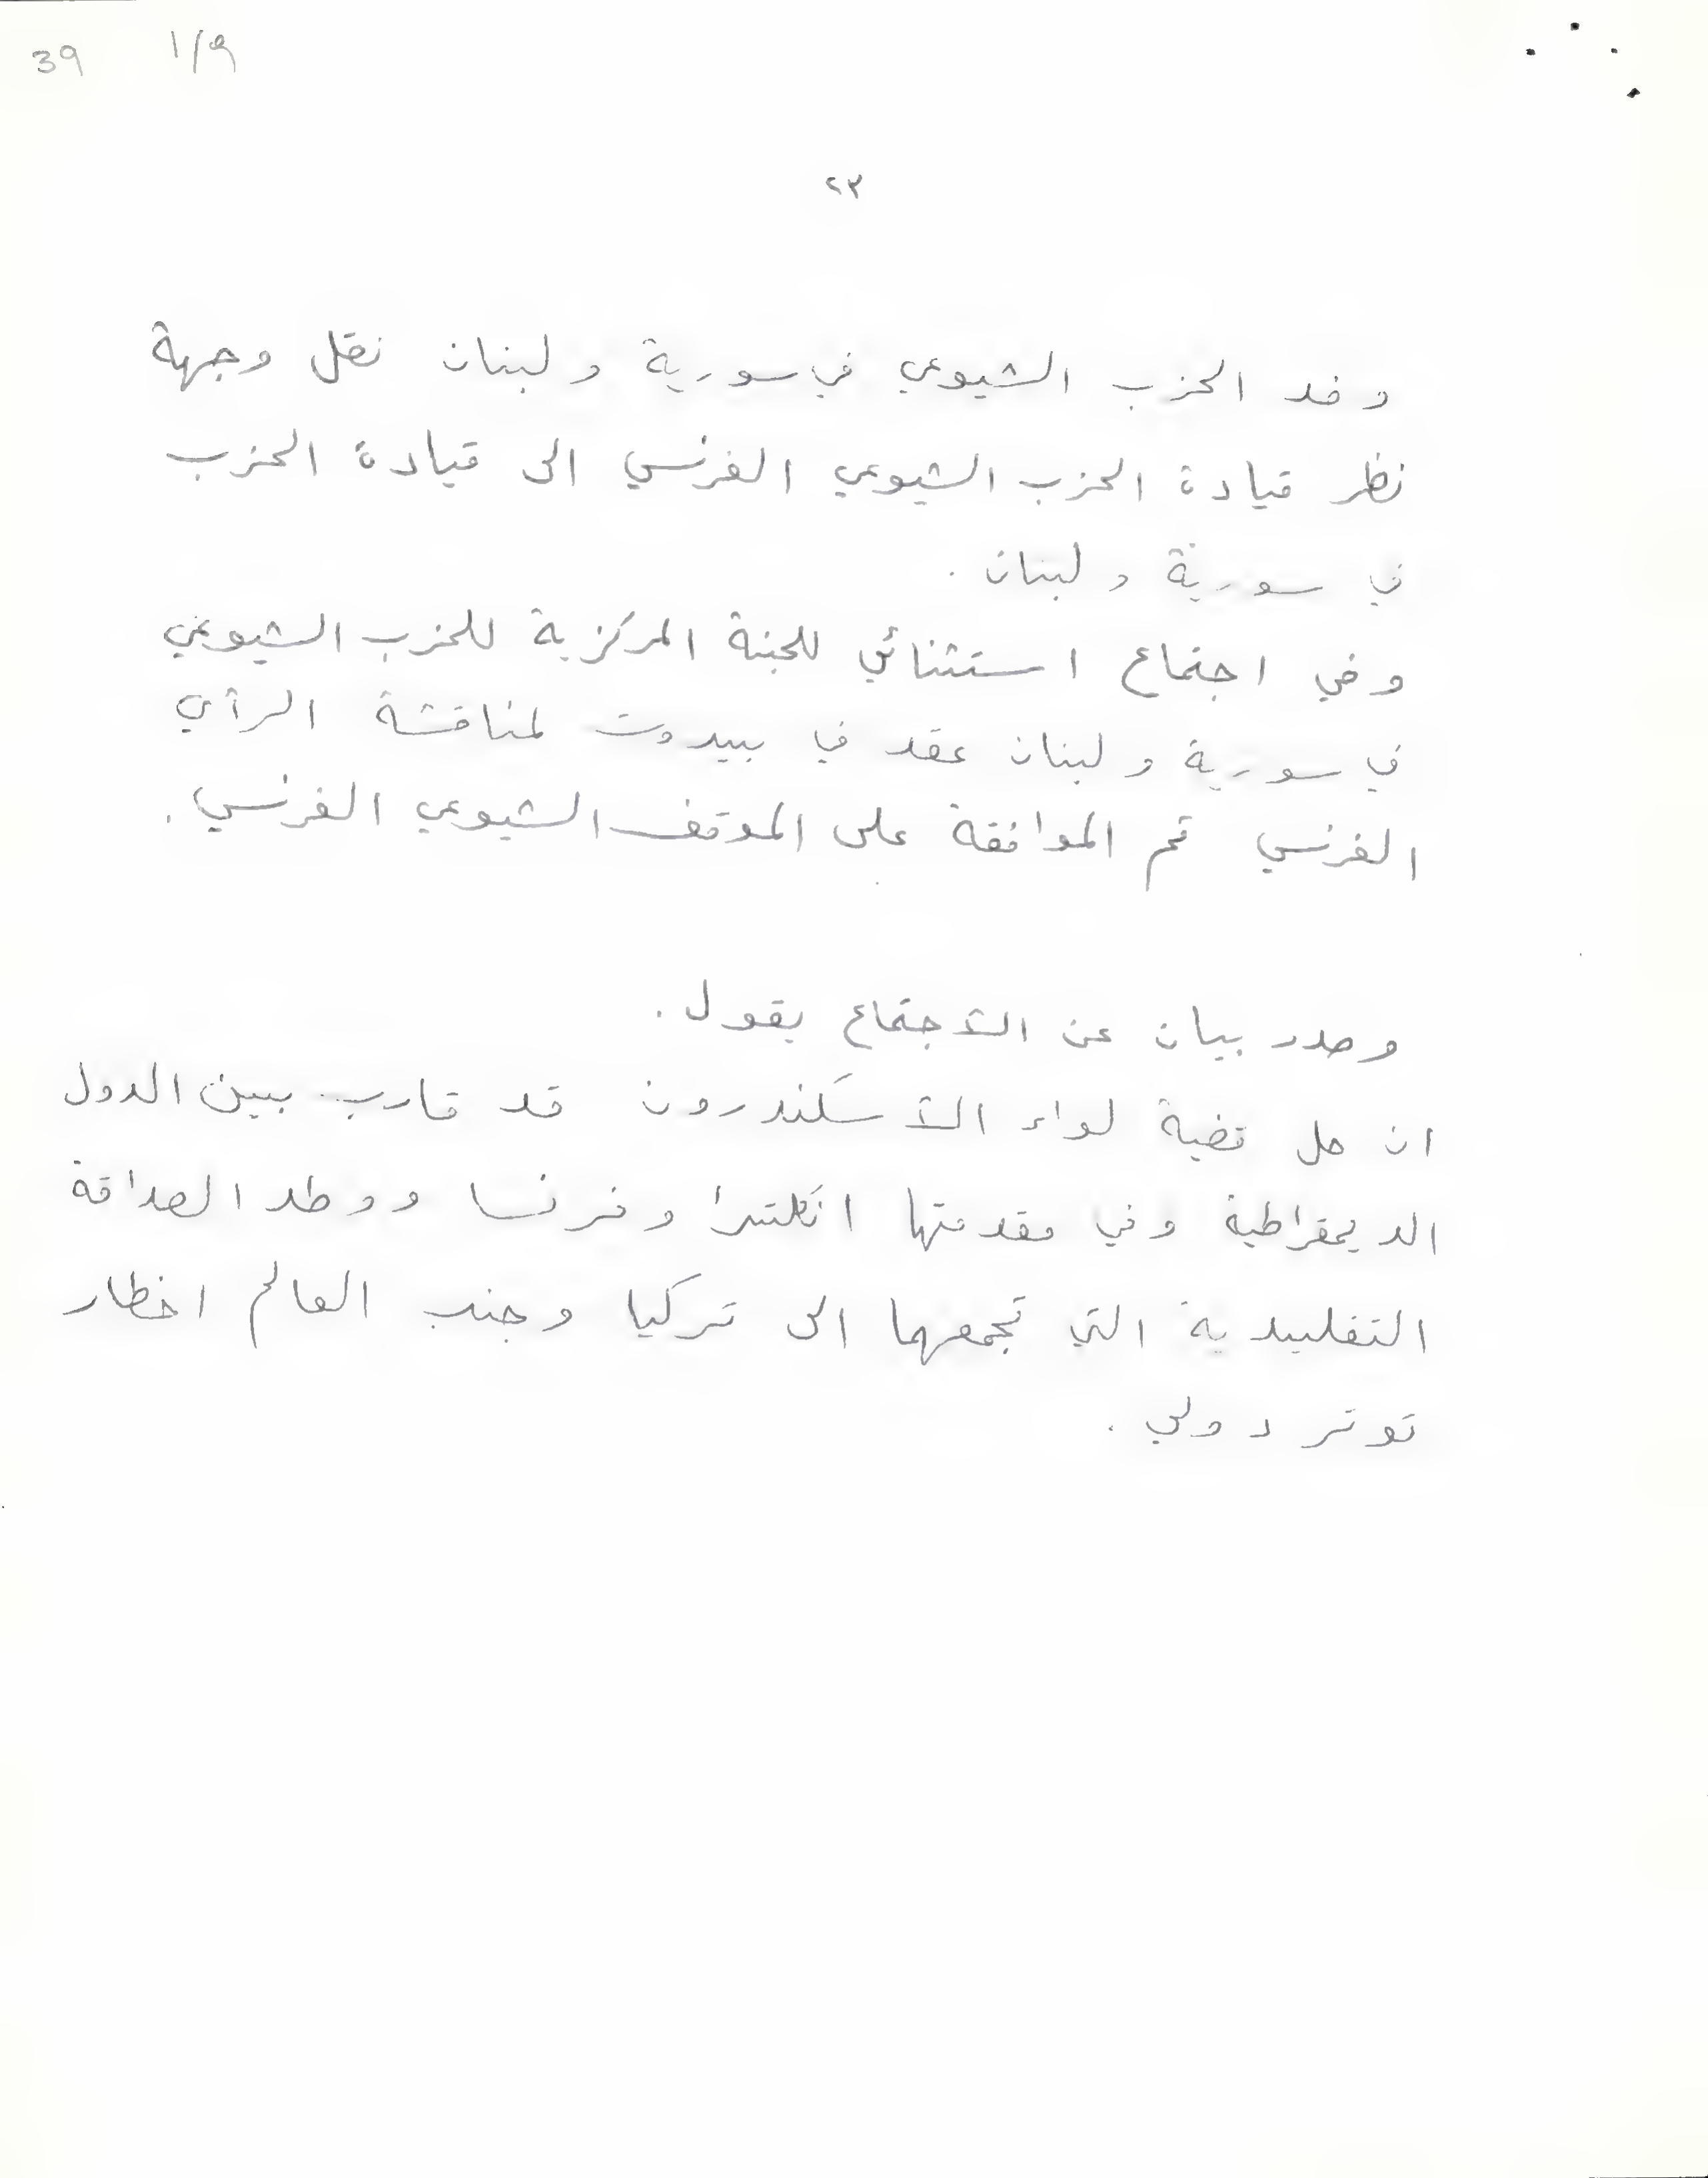 39 1/9
٢٣
وفد الحزب الشيوعي في سورية ولبنان نقل وجهة
نظر قيادة الحزب الشيوعي الفرنسي الى قيادة الحزب
في سورية ولبنان .
وفي اجتماع استثنائي للجنة المركزية للحزب الشيوعي
في سورية ولبنان عقد في بيروت لمناقشة الرأي
الفرنسي تم الموافقة على الموقف الشيوعي الفرنسي .
وصدر بيان عن الاجتماع يقول .
ان حل قضية لواء الاسكندرون قد قارب بين الدول
الديمقراطية وفي مقدمتها انكلترا وفرنسا ووطد الصداقة
التقليدية التي تجمعهما الى تركيا وجنب العالم اخطار
توتر دولي .